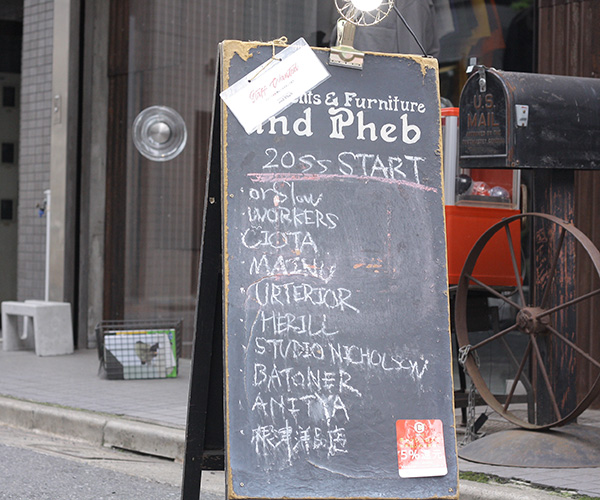 nts & Furniture
and Pheb
20SS START
orSlow
WORKERS
CIOTA
MAINU
URTERIOR
HERILL
STUDIO NICHOLSON
BATONER
ANITYA
根津洋品店
U.S.
MAIL
5%